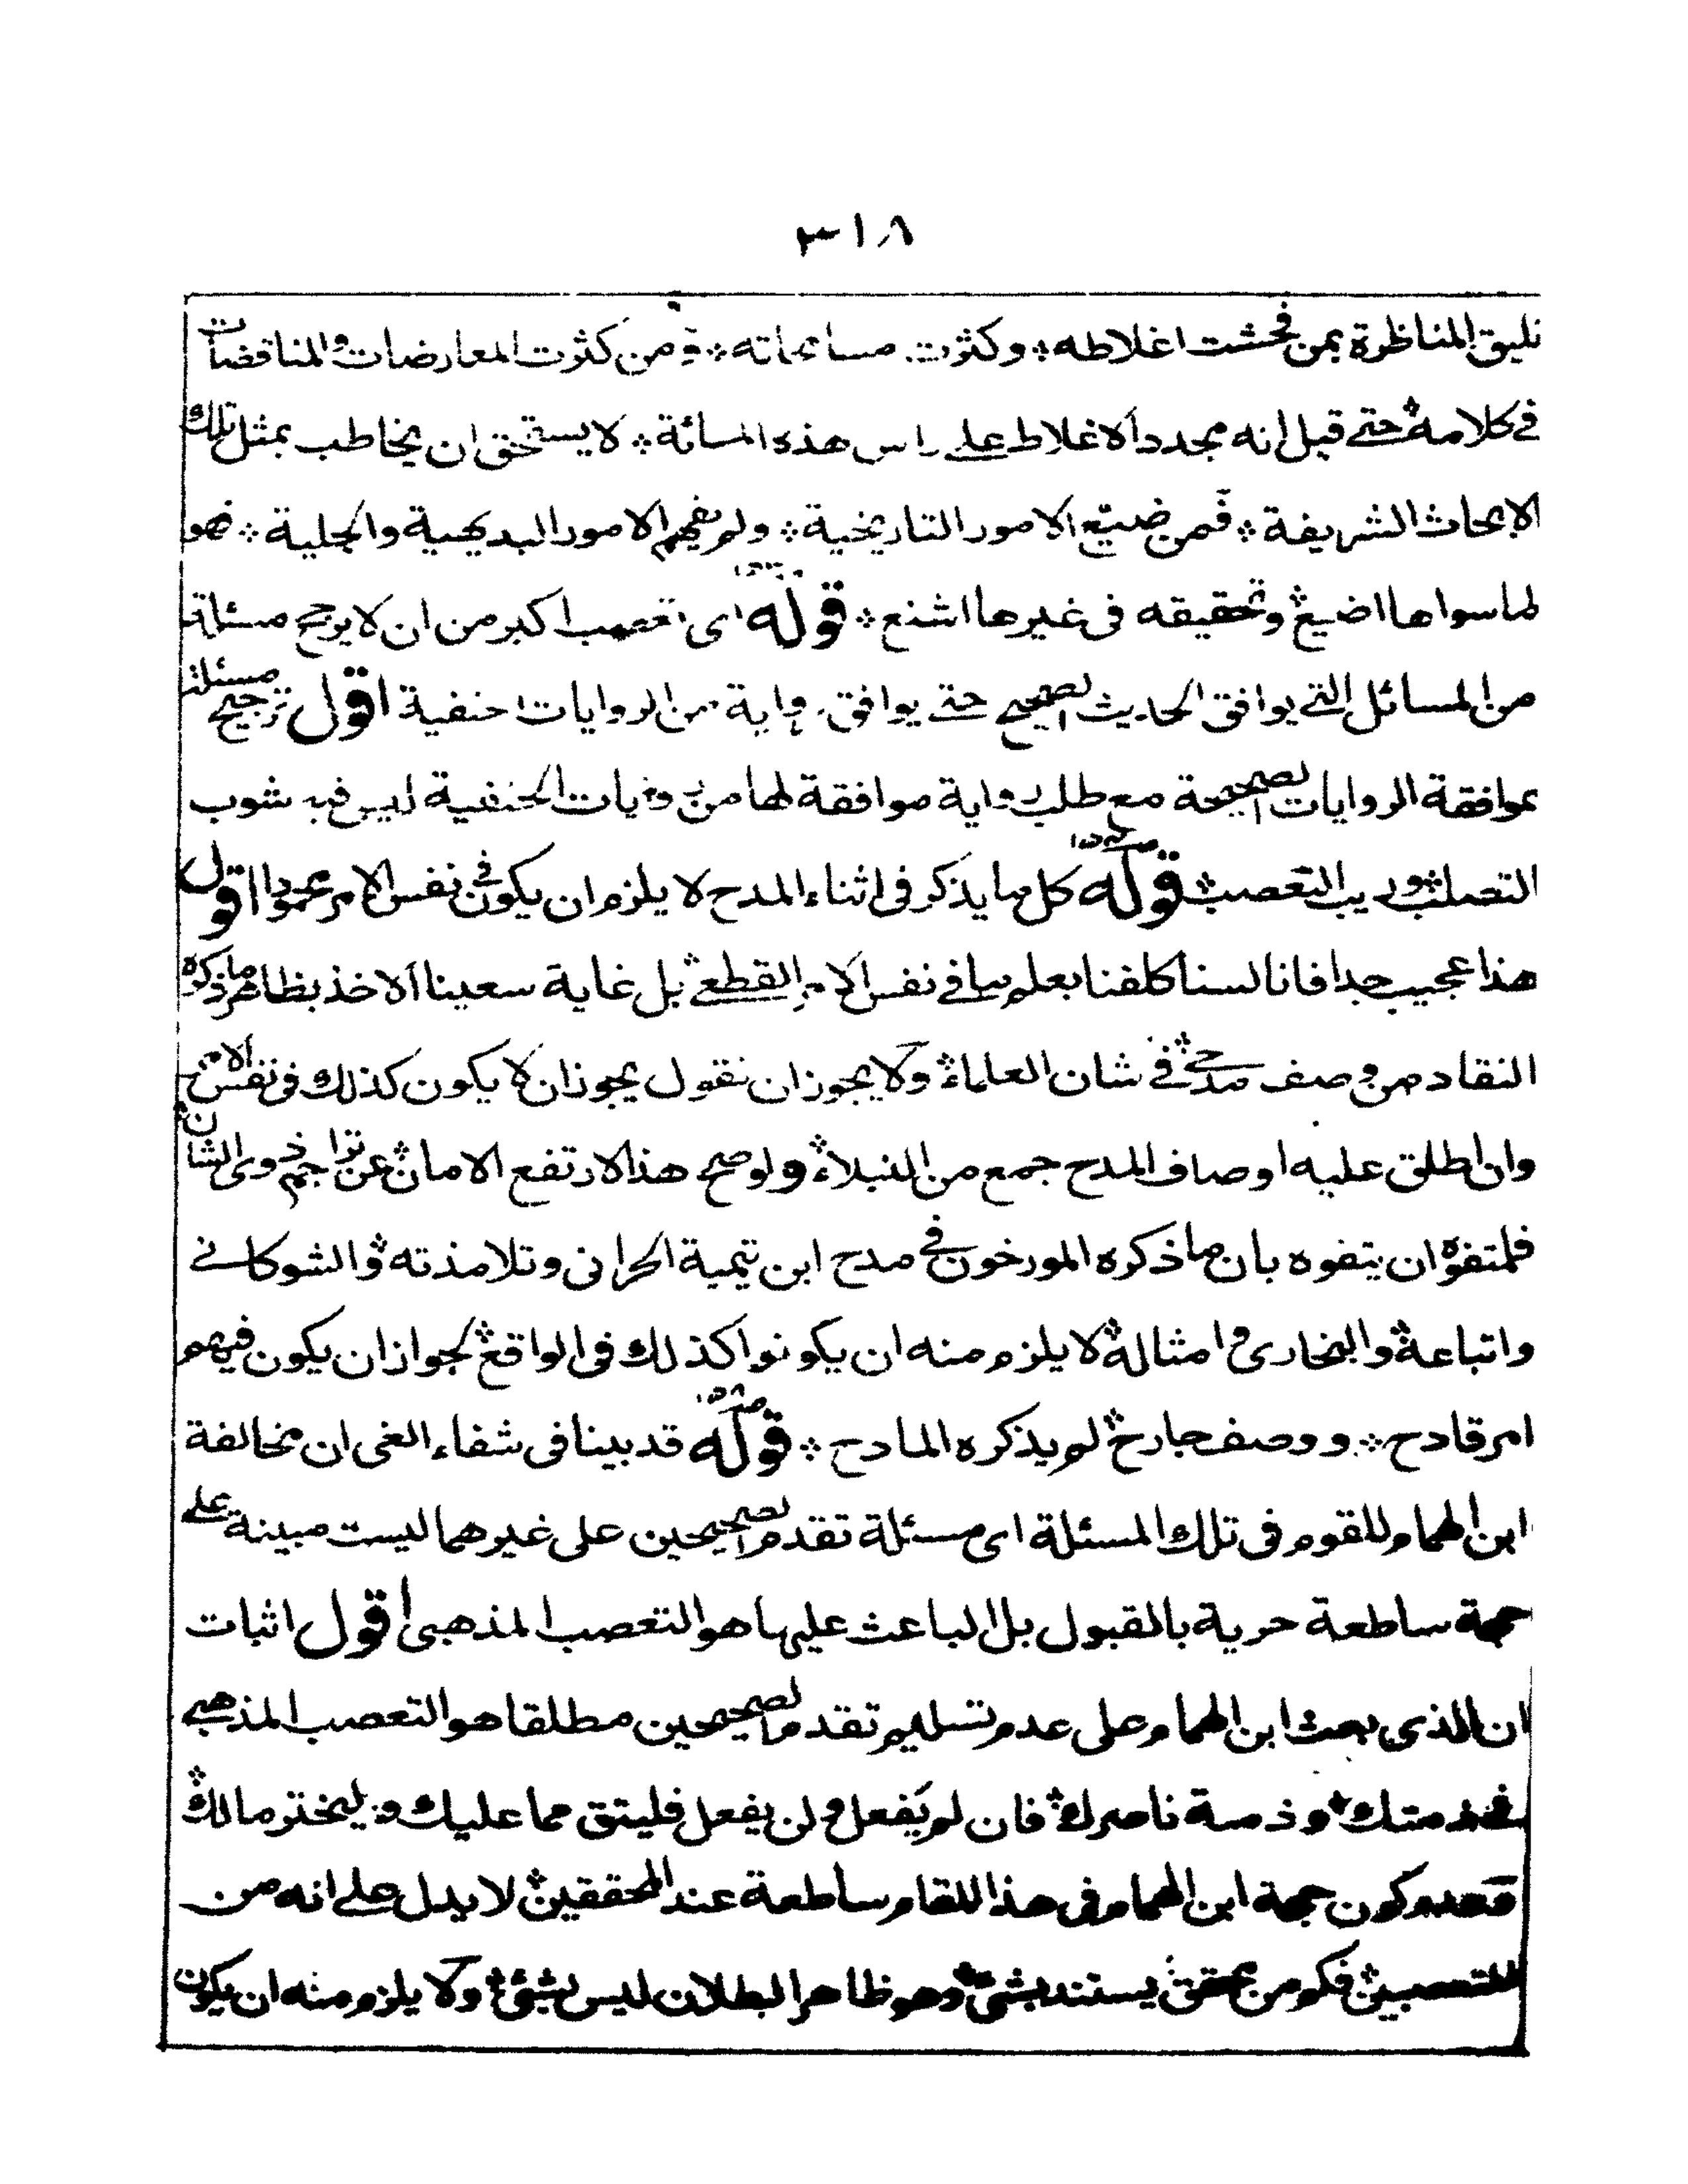 ٣١٨
تليق المناظرة بمن فحشت اغلاطه ۞ وكثرت مسامحاته ۞ ومن كثرت المعارضات والمناقضات
في كلامه ۞ حتى قيل انه مجدد الاغلاط على راس هذه المائة ۞ لا يستحق ان يخاطب بمثل تلك
الابحاث الشريفة ۞ فمن ضيّع الامور التاريخية ۞ ولم يفهم الامور البديهية والجلية ۞ فهو
لما سواها اضيع ۞ وتحقيقه في غيرها اشنع ۞ قوله اى تعصب اكبر من ان لا يرجح مسئلة
من المسائل التي يوافق الحديث الصحيح حتى يوافق رواية من الروايات الحنفية اقول ترجيح مسئلة
بموافقة الروايات الصحيحة مع طلب رواية موافقة لها من روايات الحنفية ليس فيه شوب
التصلب ۞ وريب التعصب ۞ قوله كل ما يذكر في اثناء المدح لا يلزم ان يكون في نفس الامر محمودا اقول
هذا عجيب جدا فانا لسنا كلفنا بعلم ما في نفس الامر القطعي ۞ بل غاية سعينا الاخذ بظاهر ما ذكره
النقاد من وصف مدحي ۞ في شان العلماء ۞ ولا يجوز ان نقول يجوز ان لا يكون كذلك في نفس الامر
وان اطلق عليه اوصاف المدح جمع من النبلاء ۞ ولو صح هذا لارتفع الامان ۞ عن تراجم ذوى الشان ۞
فلمتفوه ان يتفوه بان ما ذكره المورخون في مدح ابن تيمية الحرانى وتلامذته ۞ والشوكاني
واتباعه ۞ والبخارى وامثاله ۞ لا يلزم منه ان يكونوا كذلك في الواقع ۞ لجواز ان يكون فيهم
امر قادح ۞ ووصف جارح ۞ لم يذكره المادح ۞ قوله قد بينا في شفاء العى ان مخالفة
ابن الهمام للقوم في تلك المسئلة اى مسئلة تقدم الصحيحين على غيرهما ليست مبينة على
حجة ساطعة حرية بالقبول بل الباعث عليها هو التعصب المذهبى اقول اثبات
ان الذى بعث ابن الهمام على عدم تسليم تقدم الصحيحين مطلقا هو التعصب المذهبي
ذمتك ۞ وذمة ناصرك ۞ فان لم يفعل ولن يفعل فليتق مما عليك وليختر ما لك ۞
وعدم كون حجة ابن الهمام في هذا المقام ساطعة عند المحققين ۞ لا يدل على انه من
المتعصبين ۞ فكم من محقق يستند بشئ ۞ وهو ظاهر البطلان ليس بشئ ۞ ولا يلزم منه ان يكون